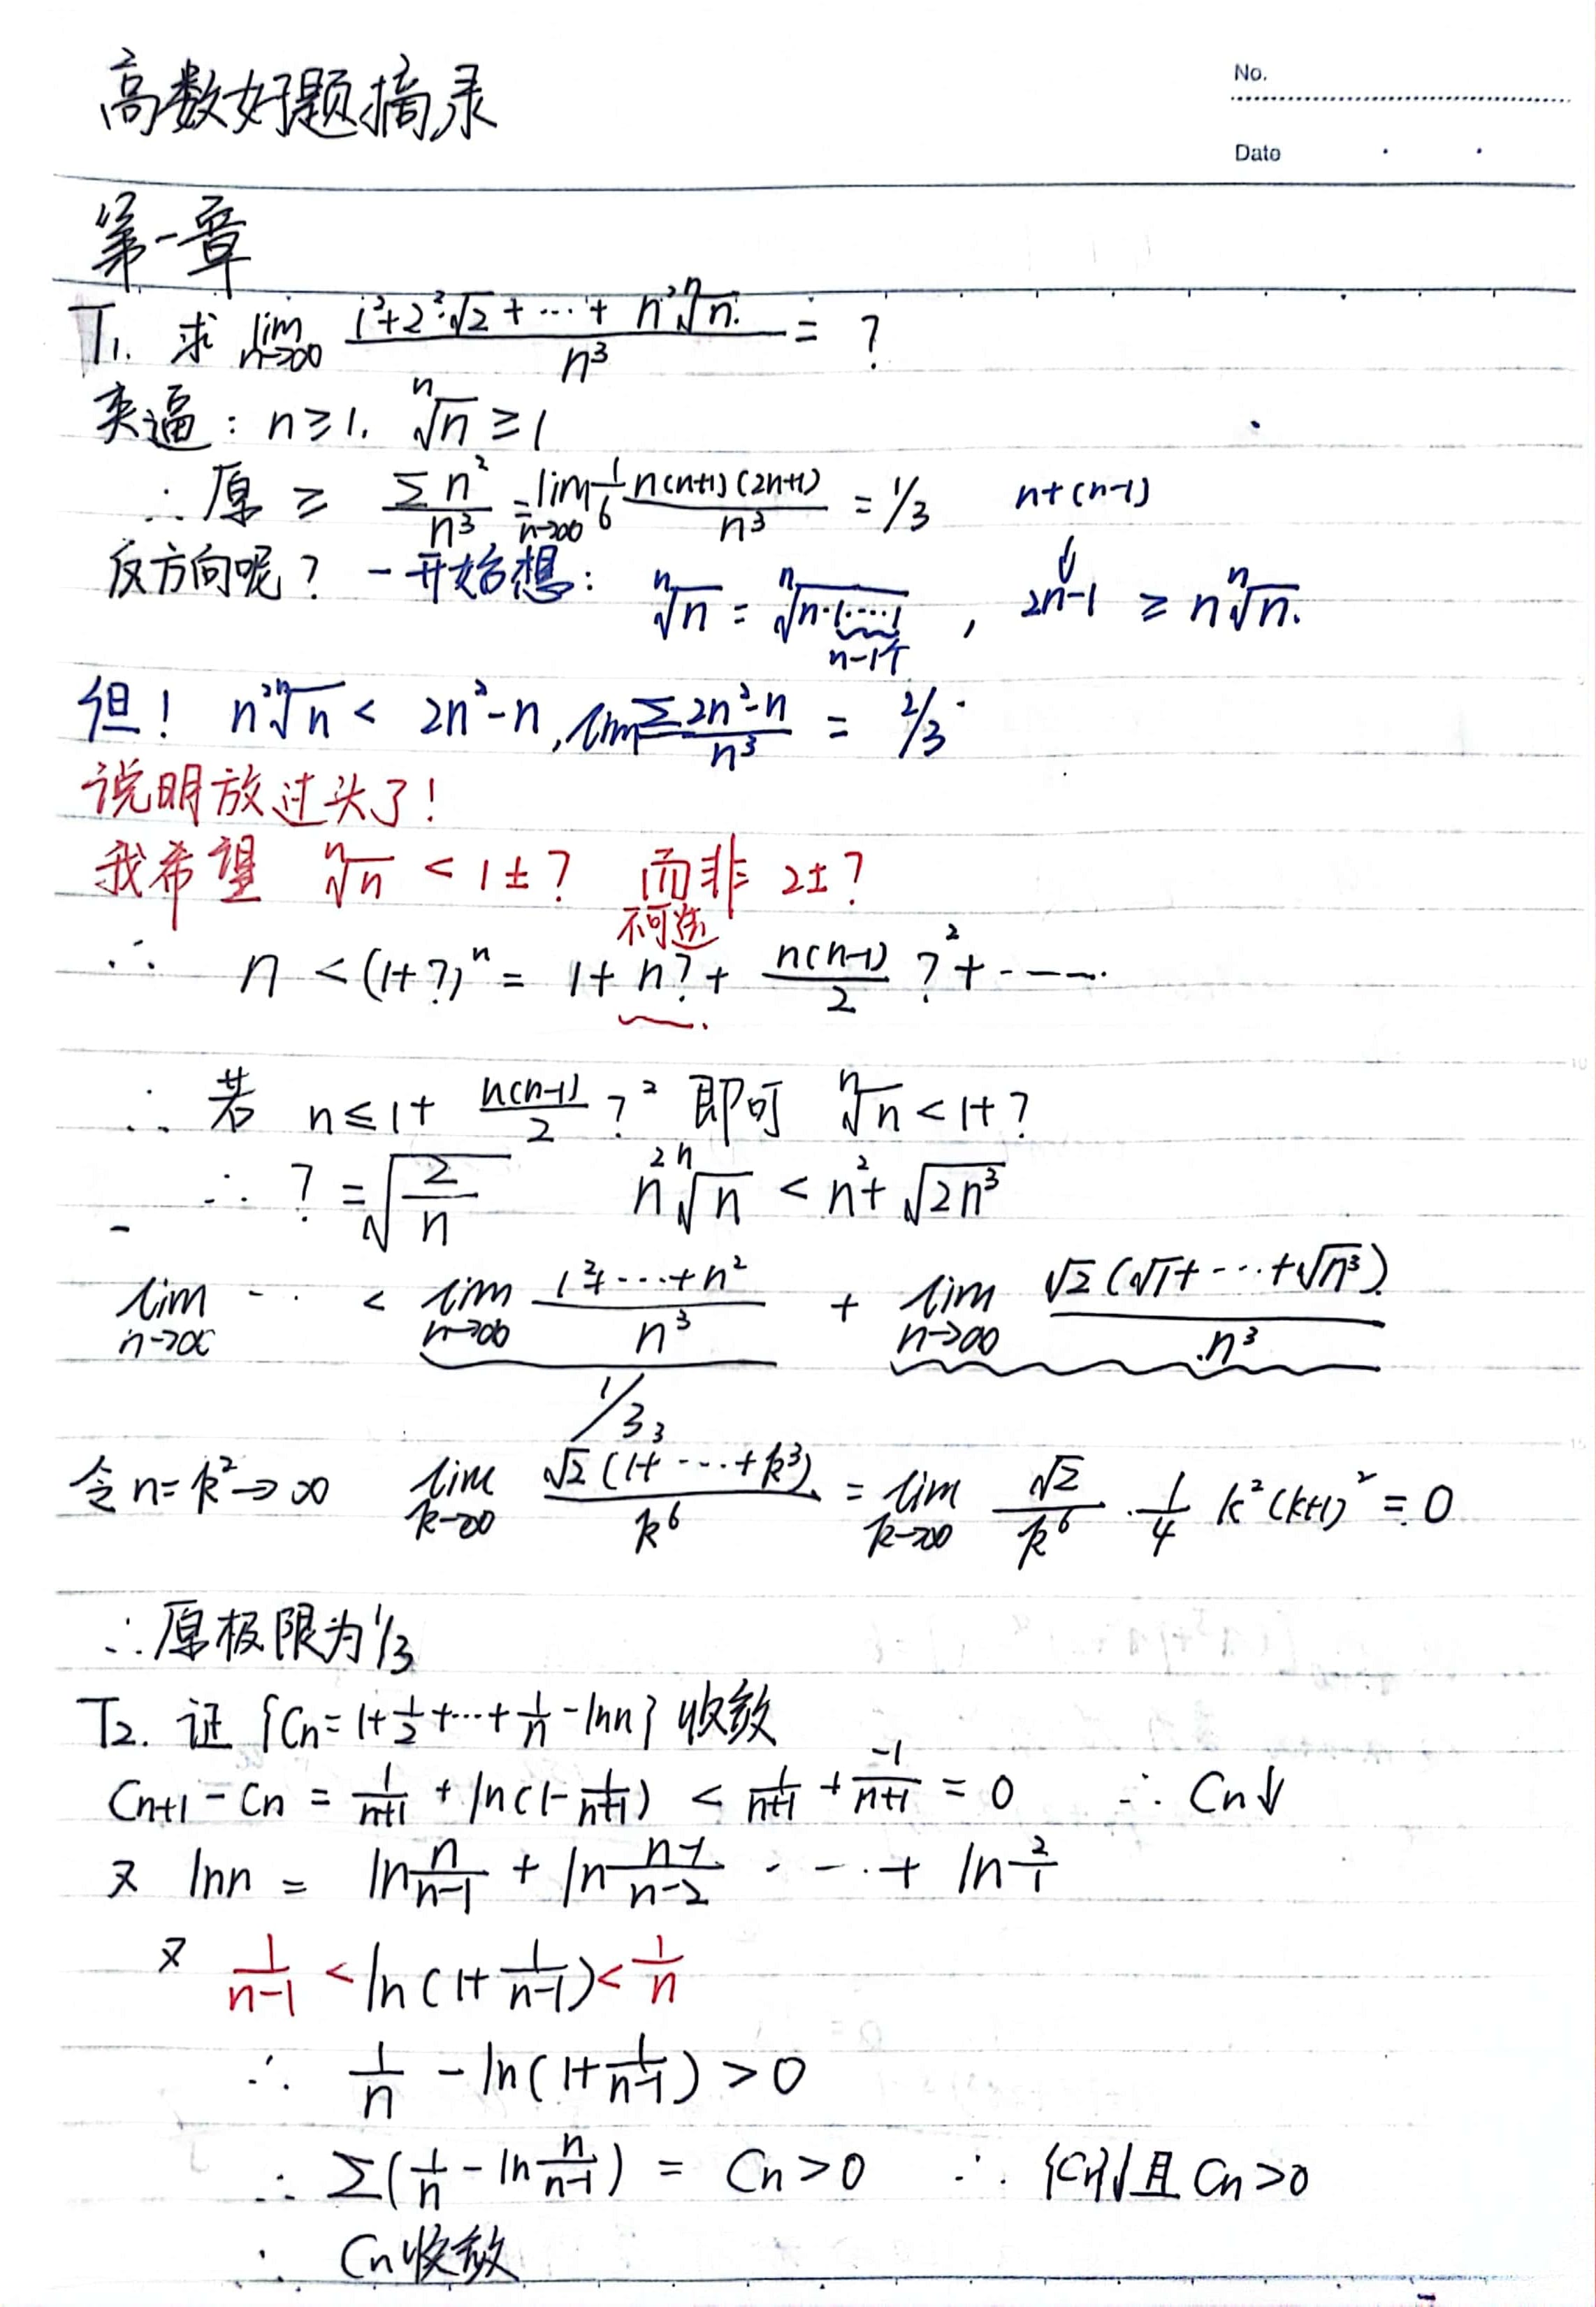 高数好题摘录
No.
Date
第一章
T1. 求 lim n→∞ (1²+2²·√2+⋯+n² ⁿ√n)/n³ = ?
夹逼: n≥1, ⁿ√n ≥ 1
∴原 ≥ Σn²/n³ = lim n→∞ 1/6 n(n+1)(2n+1)/n³ = 1/3 n+(n-1)
反方向呢? 一开始想: ⁿ√n = ⁿ√(n·1·⋯·1), 2n-1 ≥ n ⁿ√n.
n-1个
但! n² ⁿ√n < 2n²-n, lim Σ(2n²-n)/n³ = 2/3.
说明放过头了!
我希望 ⁿ√n < 1±? 而非 2±?
不可选
∴ n < (1+?)ⁿ = 1 + n? + n(n-1)/2 ?² + ----
∴ 若 n ≤ 1 + n(n-1)/2 ?² 即可 ⁿ√n < 1+?
∴ ? = √(2/n) n² ⁿ√n < n² + √(2n³)
lim n→∞ ⋯ < lim n→∞ (1²+⋯+n²)/n³ + lim n→∞ √2(√1+⋯+√n³)/n³
1/3
令 n=k²→∞ lim k→∞ √2(1+⋯+k³)/k⁶ = lim k→∞ √2/k⁶ · 1/4 k²(k+1)² = 0
∴原极限为1/3
T2. 证 {Cn=1+1/2+⋯+1/n-lnn} 收敛
Cn+1 - Cn = 1/(n+1) + ln(1-1/(n+1)) < 1/(n+1) + -1/(n+1) = 0 ∴ Cn↓
又 lnn = ln n/(n-1) + ln (n-1)/(n-2) ⋯ + ln 2/1
又 1/(n-1) < ln(1+1/(n-1)) < 1/n
∴ 1/n - ln(1+1/(n-1)) > 0
∴ Σ(1/n - ln n/(n-1)) = Cn > 0 ∴ {Cn}↓且 Cn>0
∴ Cn收敛